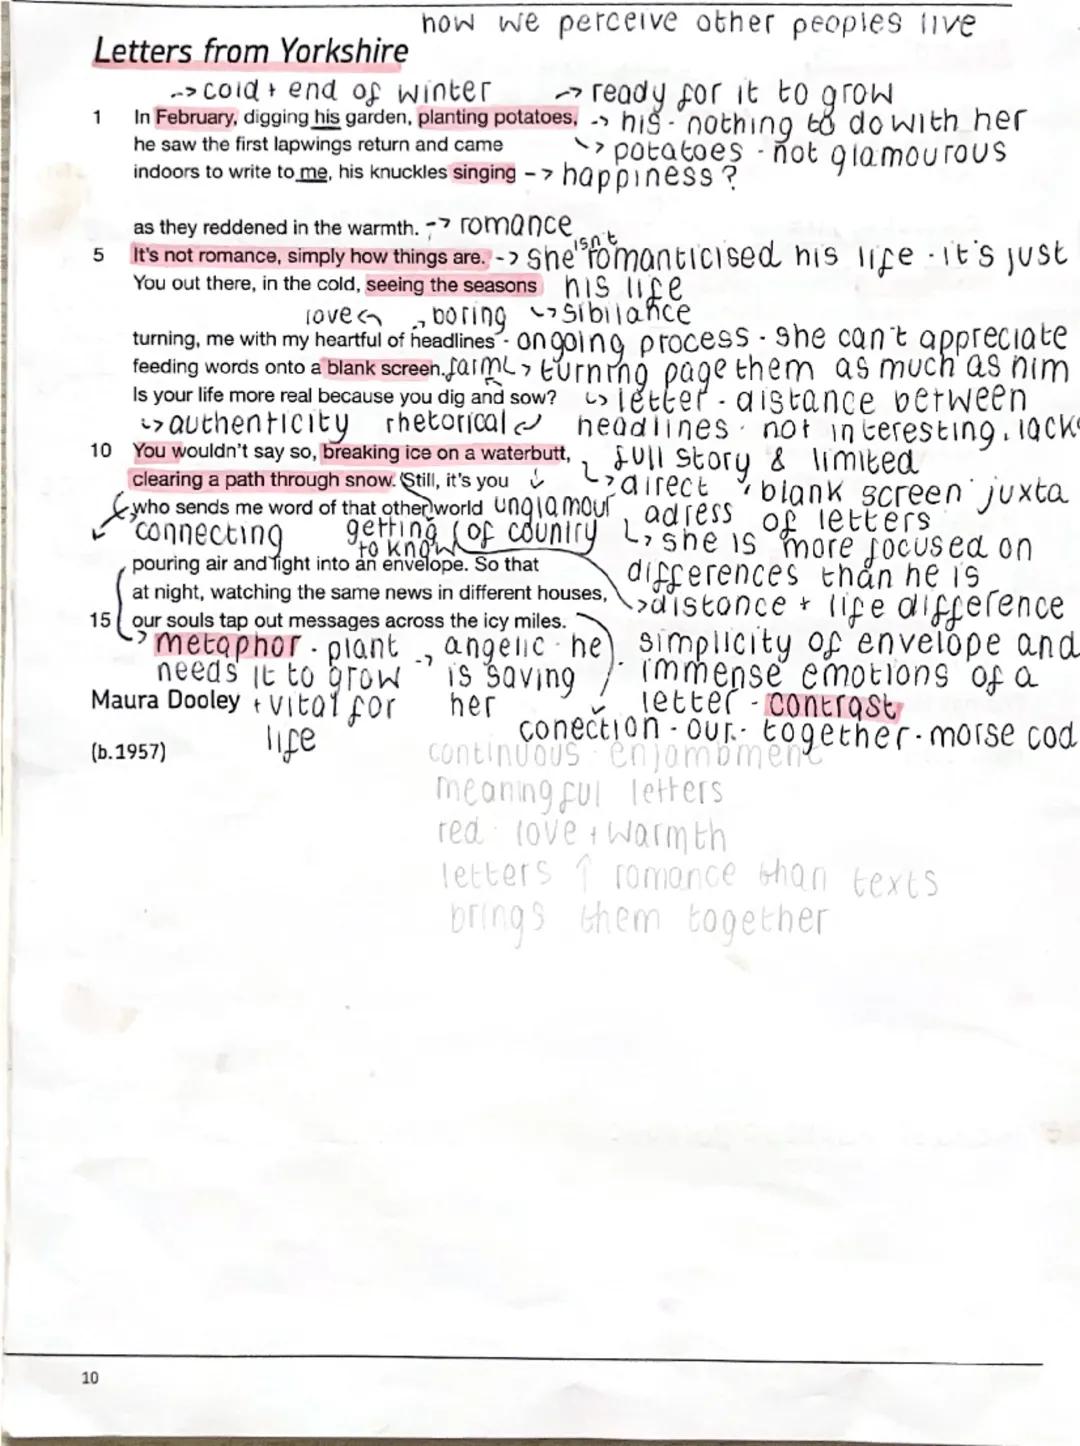 how we perceive other peoples live
Letters from Yorkshire
--> cold + end of winter -> ready for it to grow
1 In February, digging his garden, planting potatoes, -> his - nothing to do with her
he saw the first lapwings return and came -> potatoes - not glamourous
indoors to write to me, his knuckles singing -> happiness?
as they reddened in the warmth. -> romance
5 It's not romance, simply how things are. -> she isn't romanticised his life - it's just
You out there, in the cold, seeing the seasons his life
love boring -> sibilance
turning, me with my heartful of headlines - ongoing process - she can't appreciate
feeding words onto a blank screen. farm -> turning page them as much as him
Is your life more real because you dig and sow? -> letter - distance between
-> authenticity rhetorical headlines - not interesting, lack
10 You wouldn't say so, breaking ice on a waterbutt, full story & limited
clearing a path through snow. Still, it's you -> direct 'blank screen' juxta
who sends me word of that other world unglamour adress of letters
connecting getting to know of country -> she is more focused on
pouring air and light into an envelope. So that differences than he is
at night, watching the same news in different houses, -> distance + life difference
15 our souls tap out messages across the icy miles.
-> metaphor - plant angelic - he simplicity of envelope and
needs it to grow is saving immense emotions of a
Maura Dooley + vital for her letter - contrast
life conection - our - together - morse cod
(b.1957) continuous - enjambment
meaningful letters
red - love + warmth
letters ↑ romance than texts
brings them together
10